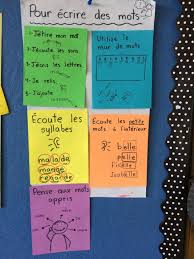 Pour écrire des mots
1- J'étire mon mot
2- J'écoute les sons
3- J'écris les lettres
4- Je relis
5- J'ajoute
Utilise le
mur de mots
Écoute les
syllabes
malade
mange
regarde
Écoute les petits
mots à l'intérieur
belle
pelle
ficelle
Isabelle
Pense aux mots
appris